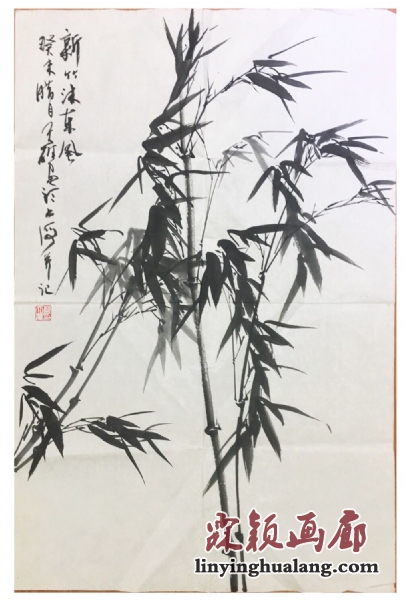 新竹沐东风
癸未腊月画于上海并记
颖画廊
linyinghualang.com